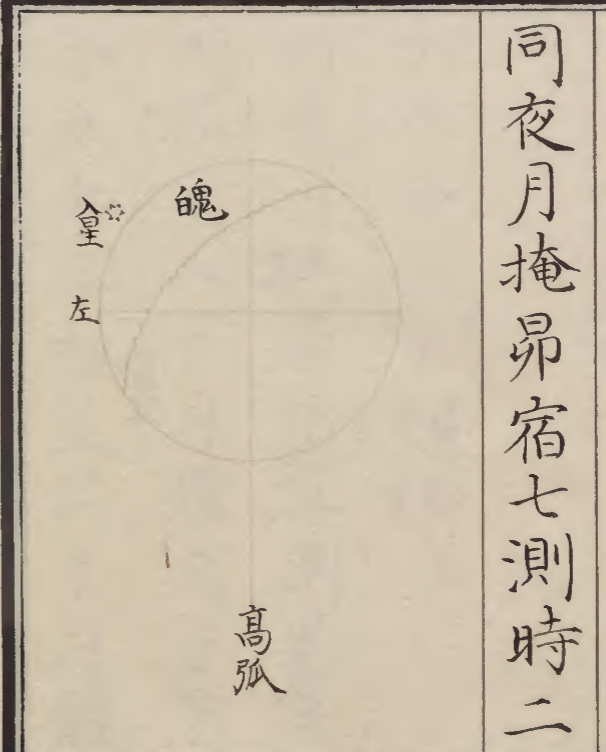 同夜月掩昴宿七測時二
魄
入星
左
高弧